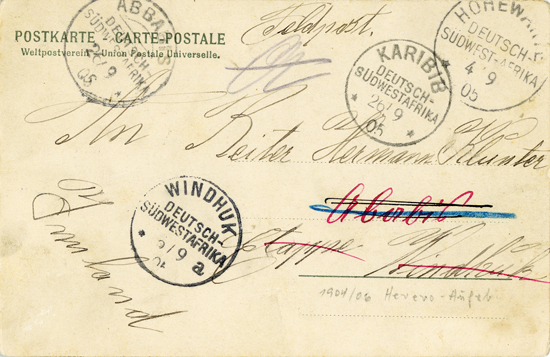 Feldpost.
POSTKARTE - CARTE-POSTALE
Weltpostverein - Union Postale Universelle.
ABBABIS
DEUTSCH-
SÜDWESTAFRIKA
9
05
HOHEWARTE
DEUTSCH-
SÜDWEST-AFRIKA
4 9
05
KARIBIB
DEUTSCH-
SÜDWESTAFRIKA
26/9
05
An
Reiter Hermann Klunter
WINDHUK
DEUTSCH-
SÜDWESTAFRIKA
* 2/9 a
05
Ababis
Etappe Windhuk
1904/06 Herero-Aufst